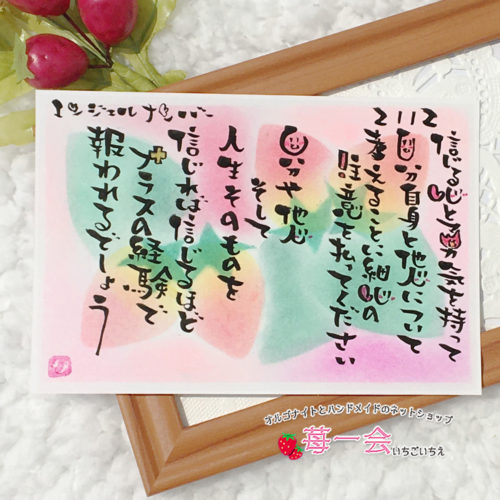 エンジェルナンバー
2112
信じる心と勇気を持って
自分自身と他人について
考えることに細心の
注意を払ってください
自分や他人
そして
人生そのものを
信じれば信じるほど
プラスの経験で
報われるでしょう
オルゴナイトとハンドメイドのネットショップ
苺一会いちごいちえ